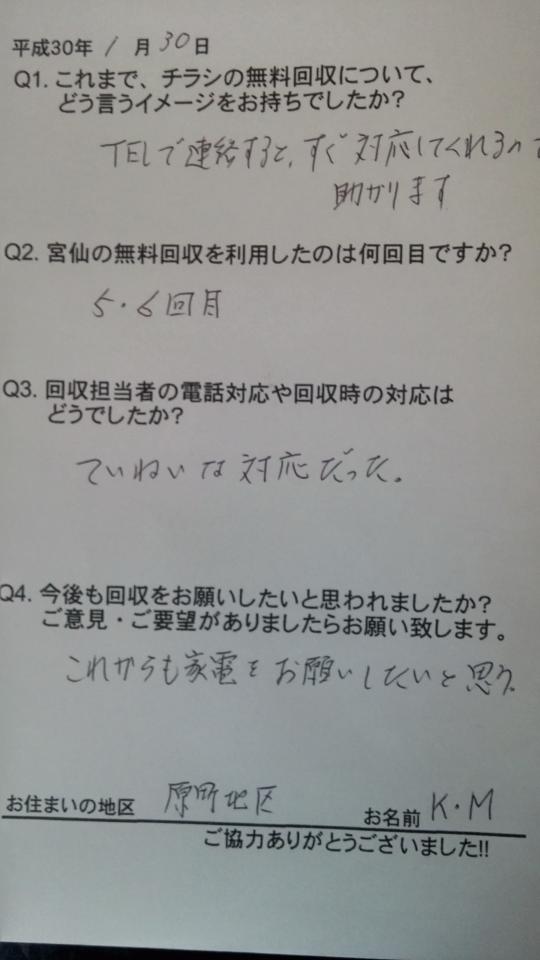 平成30年 1 月 30 日
Q1. これまで、チラシの無料回収について、
どう言うイメージをお持ちでしたか?
TELで連絡すると、すぐ対応してくれるので
助かります
Q2. 宮仙の無料回収を利用したのは何回目ですか?
5・6回目
Q3. 回収担当者の電話対応や回収時の対応は
どうでしたか?
ていねいな対応だった。
Q4. 今後も回収をお願いしたいと思われましたか?
ご意見・ご要望がありましたらお願い致します。
これからも家電をお願いしたいと思う。
お住まいの地区 原町地区 お名前 K・M
ご協力ありがとうございました!!